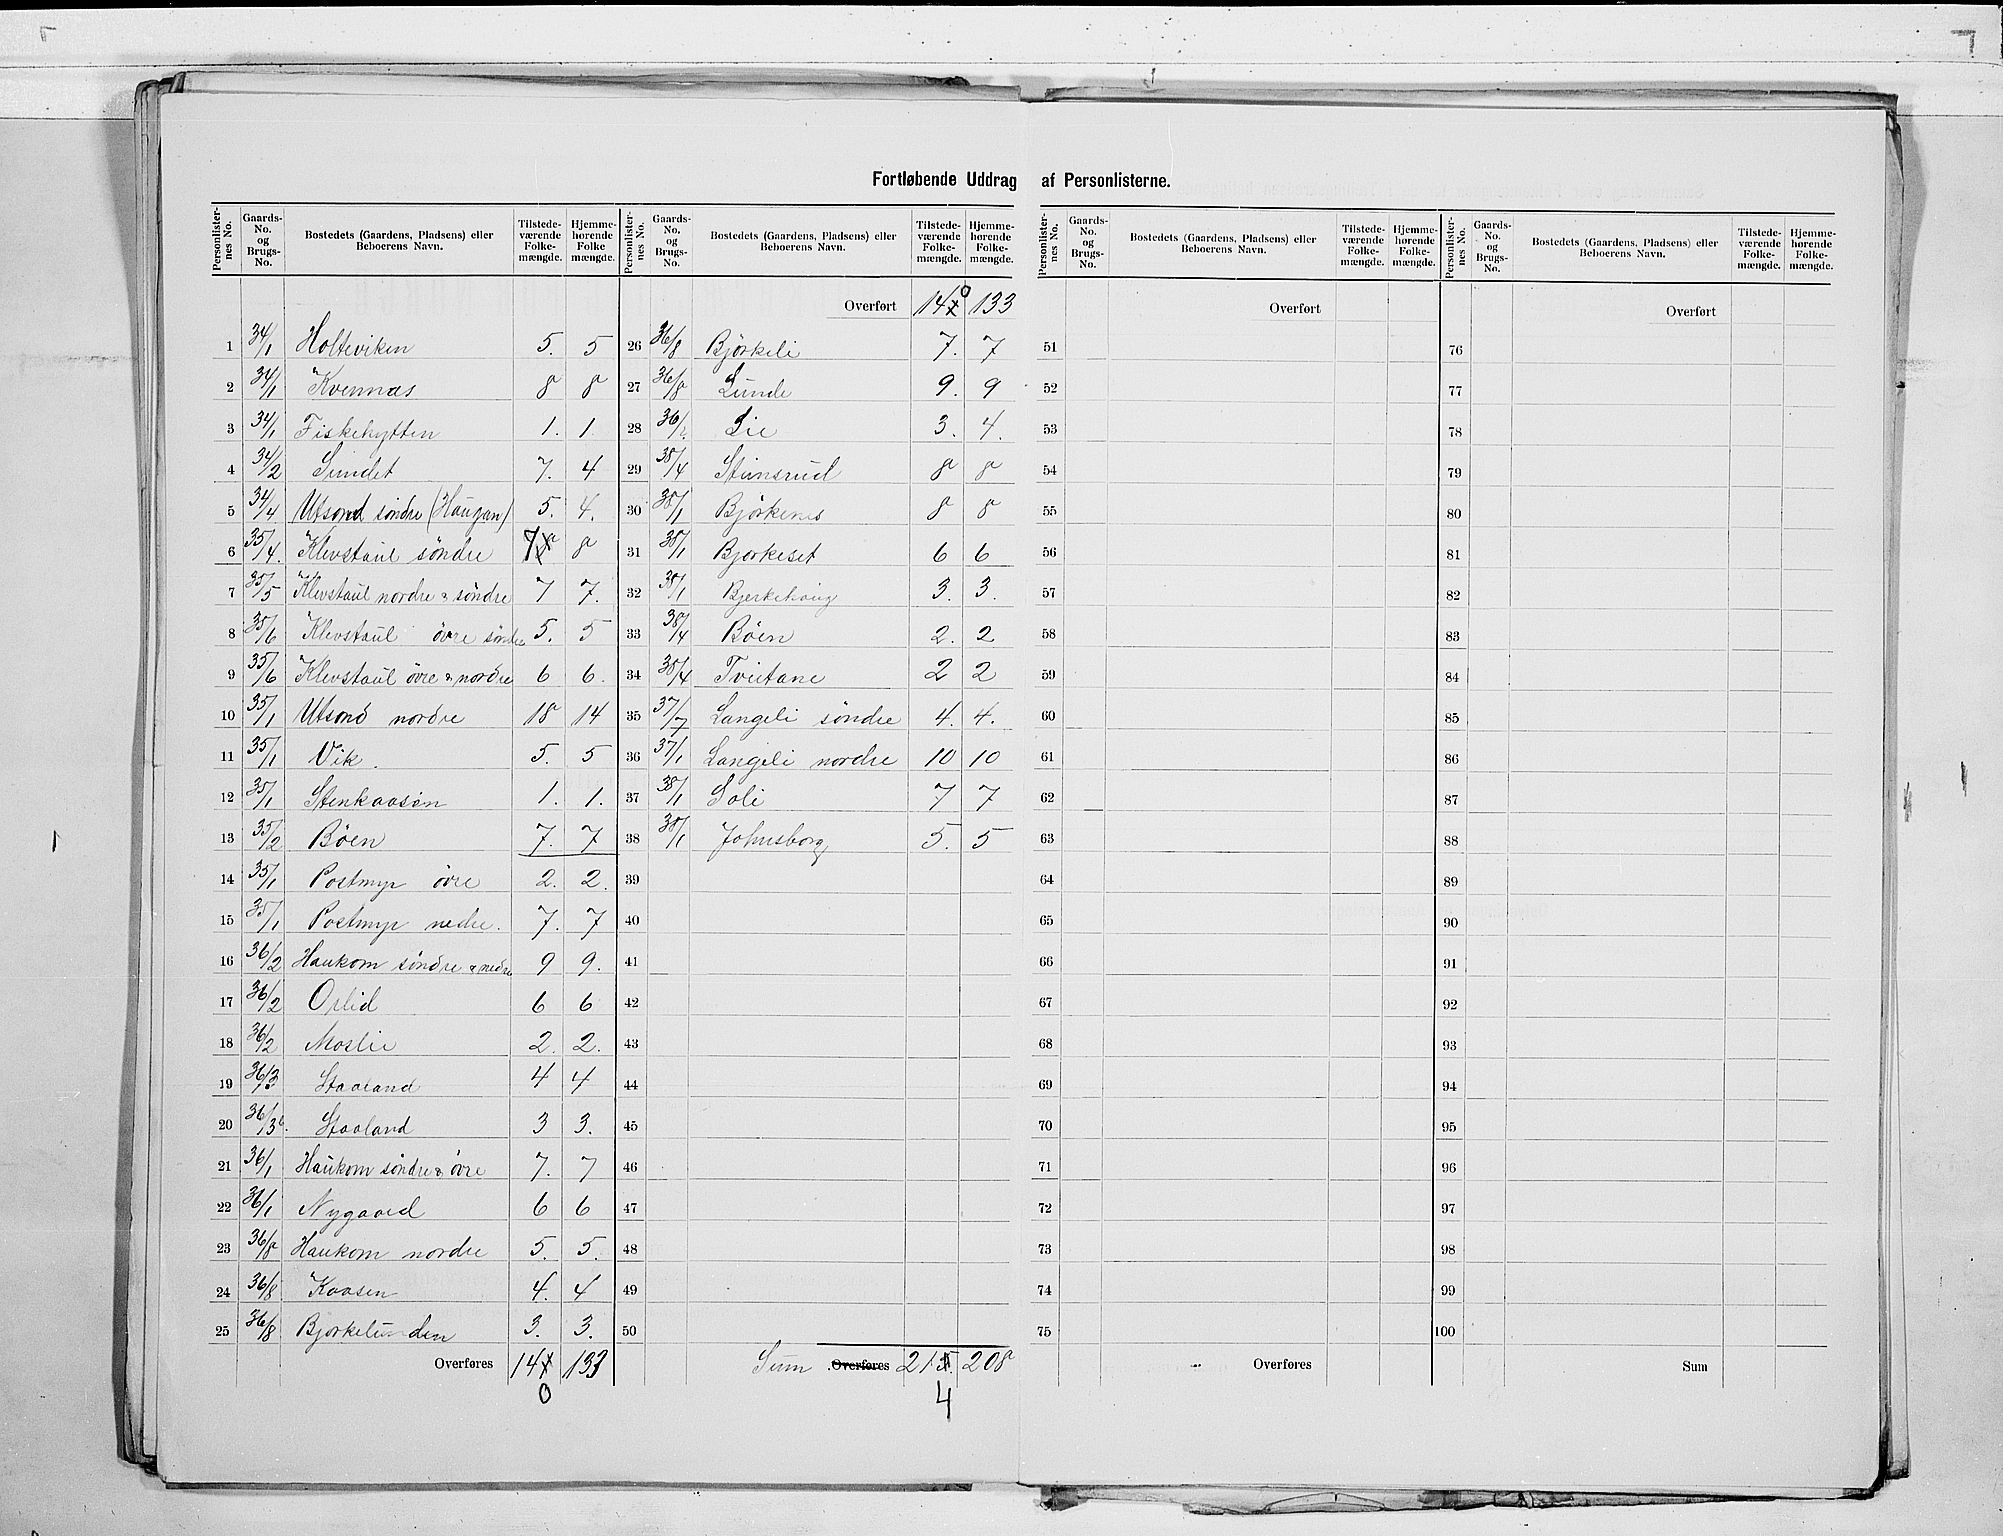 Fortløbende Uddrag af Personlisterne.
Personlister-nes No. Gaards-No. og Brugs-No. Bostedets (Gaardens, Pladsens) eller Beboerens Navn. Tilstede-værende Folke-mængde. Hjemme-hørende Folke mængde.
1 34/1 Holteviken 5. 5
2 34/1 Kvennaas 8 8
3 34/1 Fiskehytten 1. 1
4 34/2 Sundet 7. 4
5 34/4 Utsond søndre (Haugan) 5. 4.
6 35/4. Klevstaul søndre 7 8
7 35/5 Klevstaul nordre & søndre 7 7.
8 35/6 Klevstaul øvre søndre 5. 5
9 35/6 Klevstaul øvre & nordre 6 6.
10 35/1 Utsond nordre 18 14
11 35/1 Vik. 5. 5
12 35/1 Stenkaasen 1. 1.
13 35/2 Bøen 7. 7
14 35/1 Postmyr øvre 2. 2.
15 35/1 Postmyr nedre. 7. 7
16 36/2 Haukom søndre & nedre 9 9.
17 36/2 Oslid 6 6
18 36/2 Moslie 2. 2.
19 36/3 Staaland 4 4
20 36/3b. Staaland 3 3.
21 36/1 Haukom søndre & øvre 7. 7
22 36/1 Nygaard 6 6
23 36/8 Haukom nordre 5. 5.
24 36/8 Kaasen 4. 4
25 36/8 Bjørkelunden 3. 3.
Overføres 14 133
0
Personlister-nes No. Gaards-No. og Brugs-No. Bostedets (Gaardens, Pladsens) eller Beboerens Navn. Tilstede-værende Folke-mængde. Hjemme-hørende Folke-mængde.
Overført 140 133
26 36/8 Bjørkeli 7. 7
27 36/8 Lunde 9. 9
28 36/2. Lie 3. 4.
29 38/4 Stensrud 8 8
30 38/1 Bjørkenes 8 8
31 38/1 Bjørkeset 6 6
32 38/1 Bjerkehaug 3. 3.
33 38/4 Bøen 2. 2
34 38/4 Tveitane 2 2
35 37/7 Langeli søndre 4. 4.
36 37/1 Langeli nordre 10 10
37 38/1 Soli 7 7
38 38/1 Johnsborg 5. 5
39
40
41
42
43
44
45
46
47
48
49
50
Sum Overføres 215. 208
4
Personlister-nes No. Gaards-No. og Brugs-No. Bostedets (Gaardens, Pladsens) eller Beboerens Navn. Tilstede-værende Folke-mængde. Hjemme-hørende Folke-mængde.
Overført
51
52
53
54
55
56
57
58
59
60
61
62
63
64
65
66
67
68
69
70
71
72
73
74
75
Overføres
Personlister-nes No. Gaards-No. og Brugs-No. Bostedets (Gaardens, Pladsens) eller Beboerens Navn. Tilstede-værende Folke-mængde. Hjemme-hørende Folke-mængde.
Overført
76
77
78
79
80
81
82
83
84
85
86
87
88
89
90
91
92
93
94
95
96
97
98
99
100
Sum